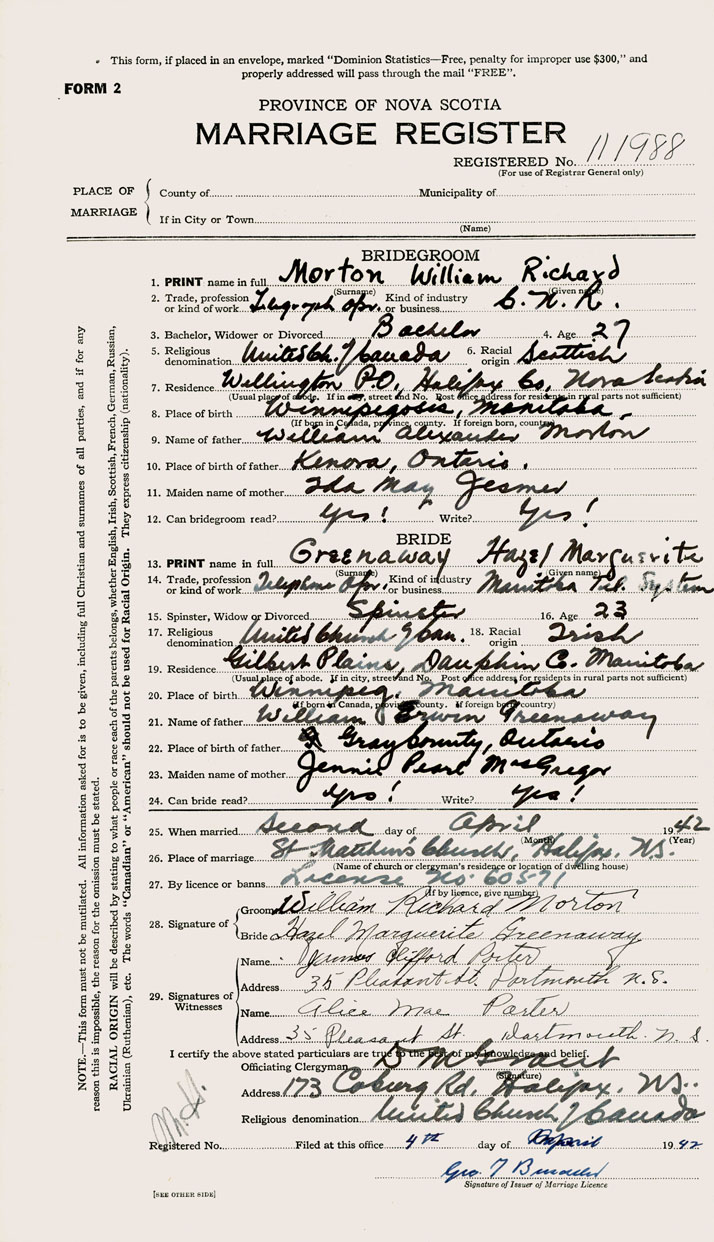 This form, if placed in an envelope, marked "Dominion Statistics—Free, penalty for improper use $300," and
properly addressed will pass through the mail "FREE".
FORM 2
PROVINCE OF NOVA SCOTIA
MARRIAGE REGISTER
REGISTERED No. 111988
(For use of Registrar General only)
PLACE OF MARRIAGE
County of Municipality of
If in City or Town
(Name)
BRIDEGROOM
1. PRINT name in full Morton William Richard
(Surname) (Given name)
2. Trade, profession or kind of work Telegraph Opr. Kind of industry or business C. N. R.
3. Bachelor, Widower or Divorced Bachelor 4. Age 27
5. Religious denomination United Ch. of Canada 6. Racial origin Scottish
7. Residence Wellington PO, Halifax Co, Nova Scotia
(Usual place of abode. If in city, street and No. Post office address for residents in rural parts not sufficient)
8. Place of birth Winnipegosis, Manitoba.
(If born in Canada, province, county. If foreign born, country)
9. Name of father William Alexander Morton
10. Place of birth of father Kenora, Ontario.
11. Maiden name of mother Ida May Jesmer
12. Can bridegroom read? Yes! Write? Yes!
BRIDE
13. PRINT name in full Greenaway Hazel Marguerite
(Surname) (Given name)
14. Trade, profession or kind of work Telephone Opr. Kind of industry or business Manitoba Tel. System
15. Spinster, Widow or Divorced Spinster 16. Age 23
17. Religious denomination United Church of Can. 18. Racial origin Irish
19. Residence Gilbert Plains, Dauphin C. Manitoba
(Usual place of abode. If in city, street and No. Post office address for residents in rural parts not sufficient)
20. Place of birth Winnipeg. Manitoba
(If born in Canada, province, county. If foreign born, country)
21. Name of father William Erwin Greenaway
22. Place of birth of father Gray County, Ontario
23. Maiden name of mother Jennie Pearl McGregor
24. Can bride read? Yes! Write? Yes!
25. When married Second day of April 1942
(Month) (Year)
26. Place of marriage St Matthew's Church, Halifax. N.S.
(Name of church or clergyman's residence or location of dwelling house)
27. By licence or banns License No. 60571
(If by licence, give number)
28. Signature of
Groom William Richard Morton
Bride Hazel Marguerite Greenaway
29. Signatures of Witnesses
Name Clifford Porter
Address 35 Pleasant St. Dartmouth N.S.
Name Alice Mae Porter
Address 35 Pleasant St. Dartmouth. N.S.
I certify the above stated particulars are true to the best of my knowledge and belief.
Officiating Clergyman
(Signature)
Address 173 Coburg Rd, Halifax. N.S.
Religious denomination United Church of Canada
Registered No. Filed at this office 4th day of April 1942
Geo. T
Signature of Issuer of Marriage Licence
[SEE OTHER SIDE]
NOTE.—This form must not be mutilated. All information asked for is to be given, including full Christian and surnames of all parties, and if for any
reason this is impossible, the reason for the omission must be stated.
RACIAL ORIGIN will be described by stating to what people or race each of the parents belongs, whether English, Irish, Scottish, French, German, Russian,
Ukrainian (Ruthenian), etc. The words "Canadian" or "American" should not be used for Racial Origin. They express citizenship (nationality).